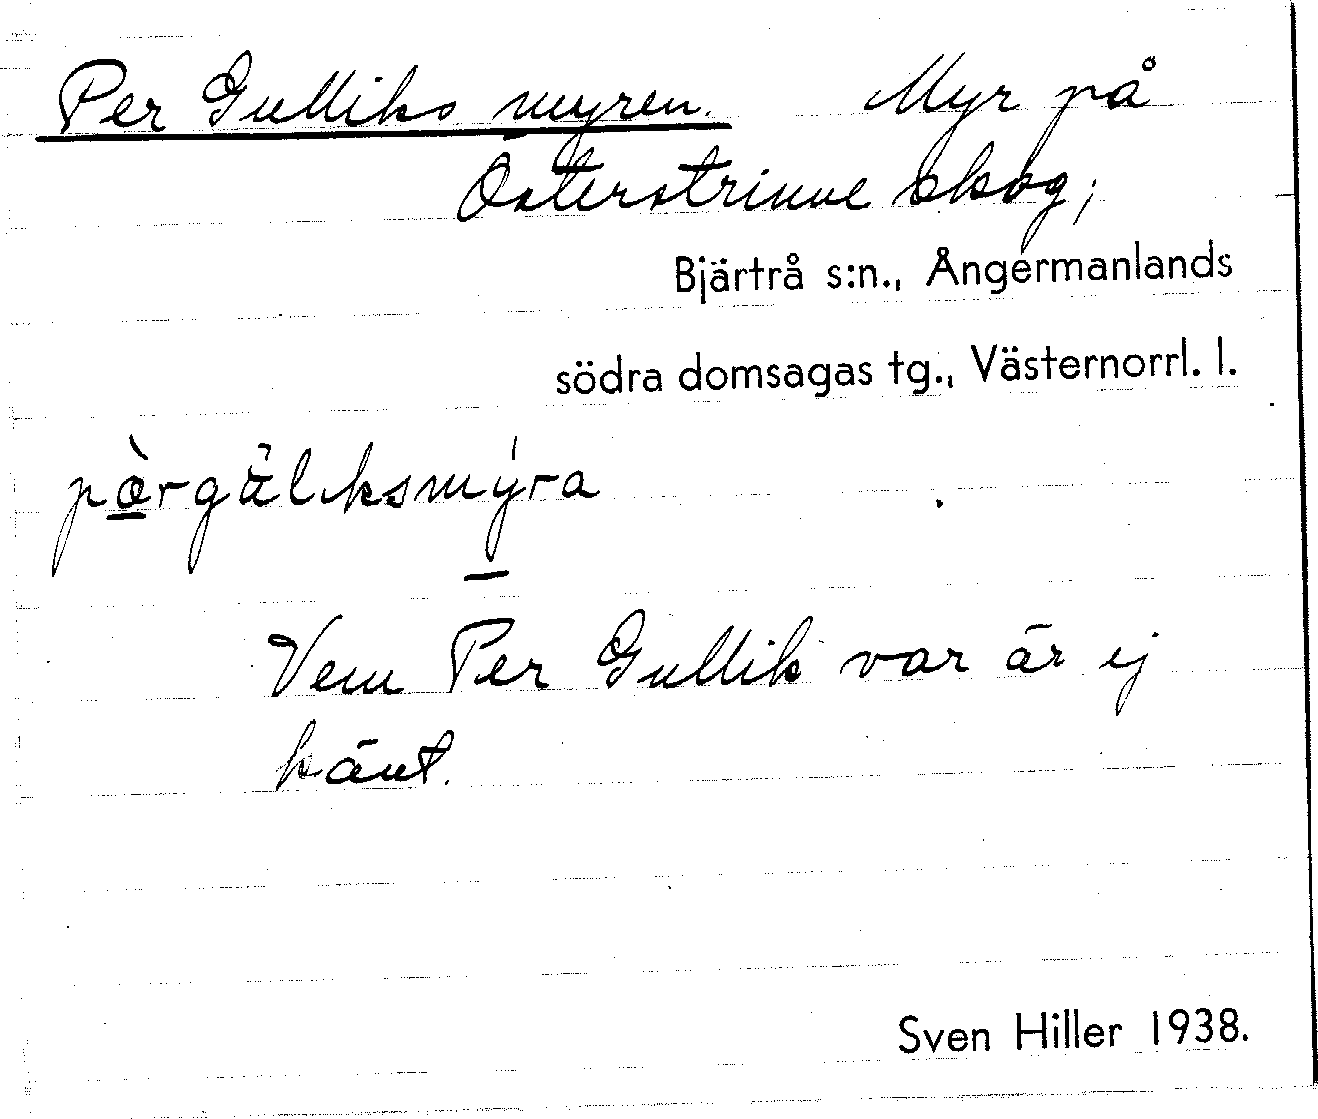 Per Gulliks myren. Myr på
Österstrinne skog,
Bjärtrå s:n., Ångermanlands
södra domsagas tg., Västernorrl. l.
pæ̀rgäliksmýra
Vem Per Gullik var är ej
känt.
Sven Hiller 1938.